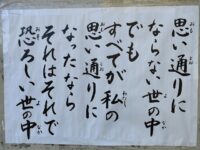 思い通りに
ならない世の中
でも
すべてが私の
思い通りに
なったなら
それはそれで
恐ろしい世の中